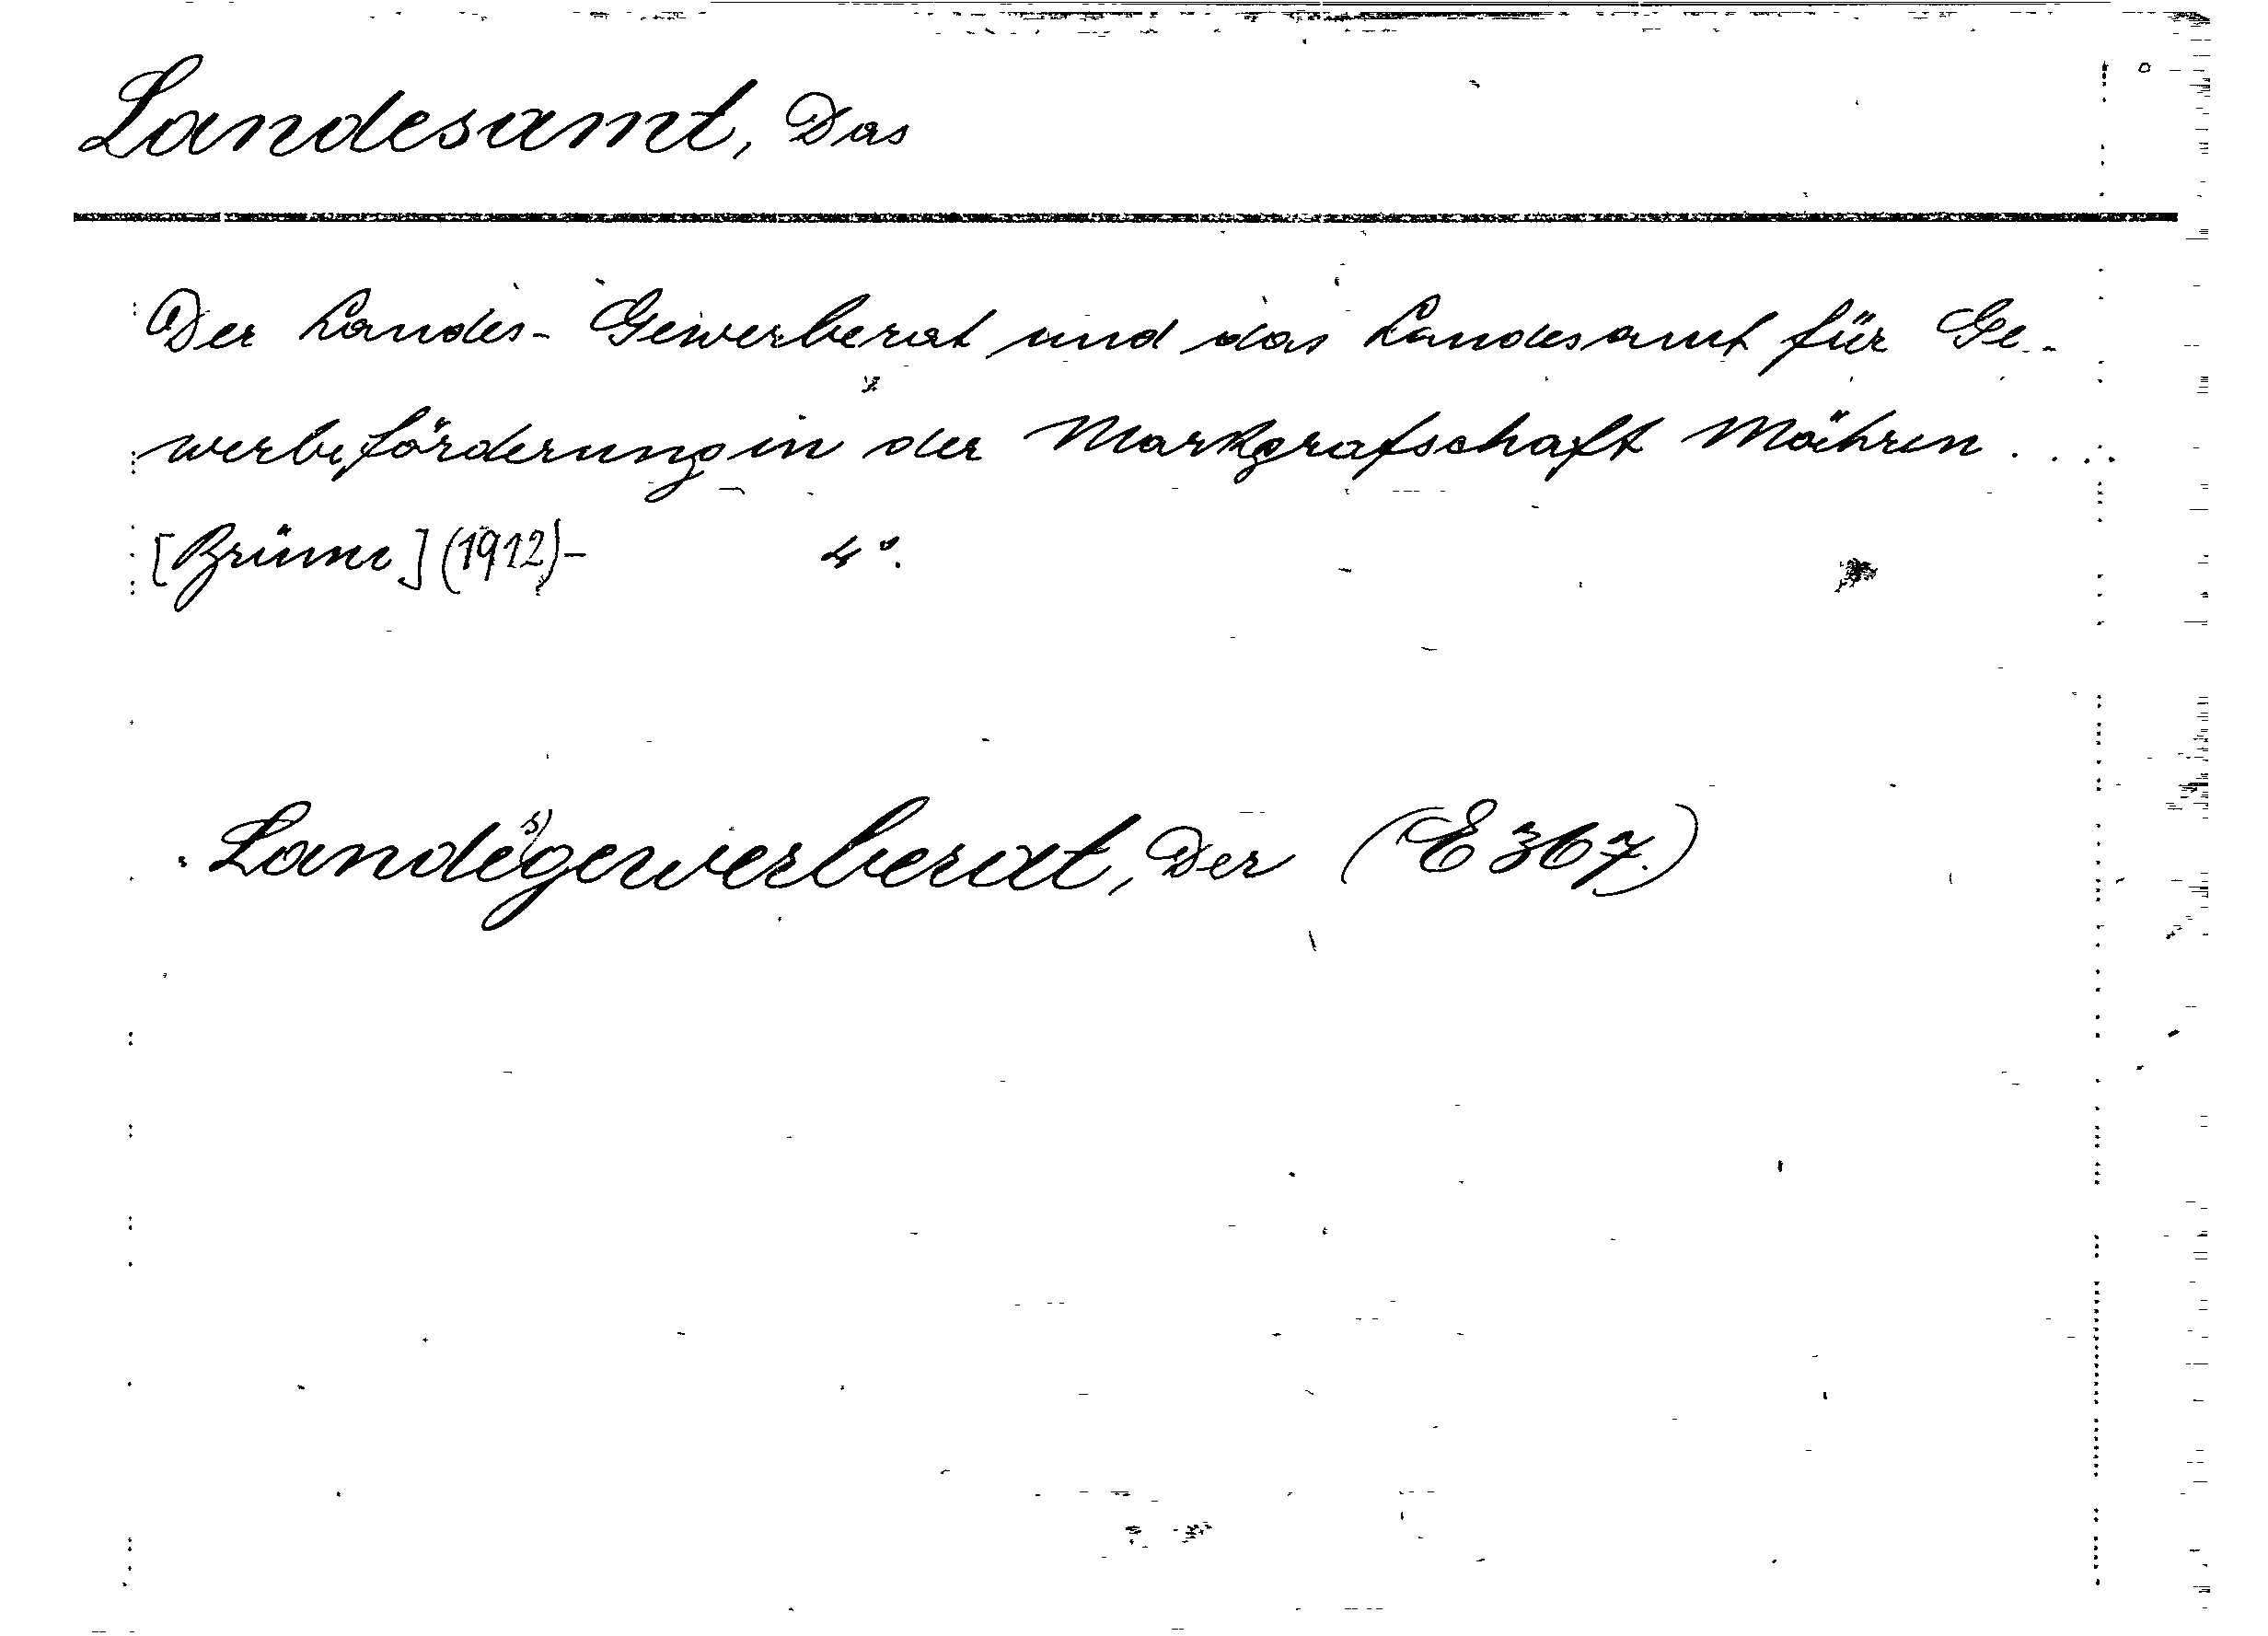 Landesamt, Das
Der Landes- Gewerberat und das Landesamt für Ge-
werbeförderung in der Markgrafschaft Mähren . . . .
[Brünn] (1912)- 4°.
Landesgewerberat, Der (E 367.)